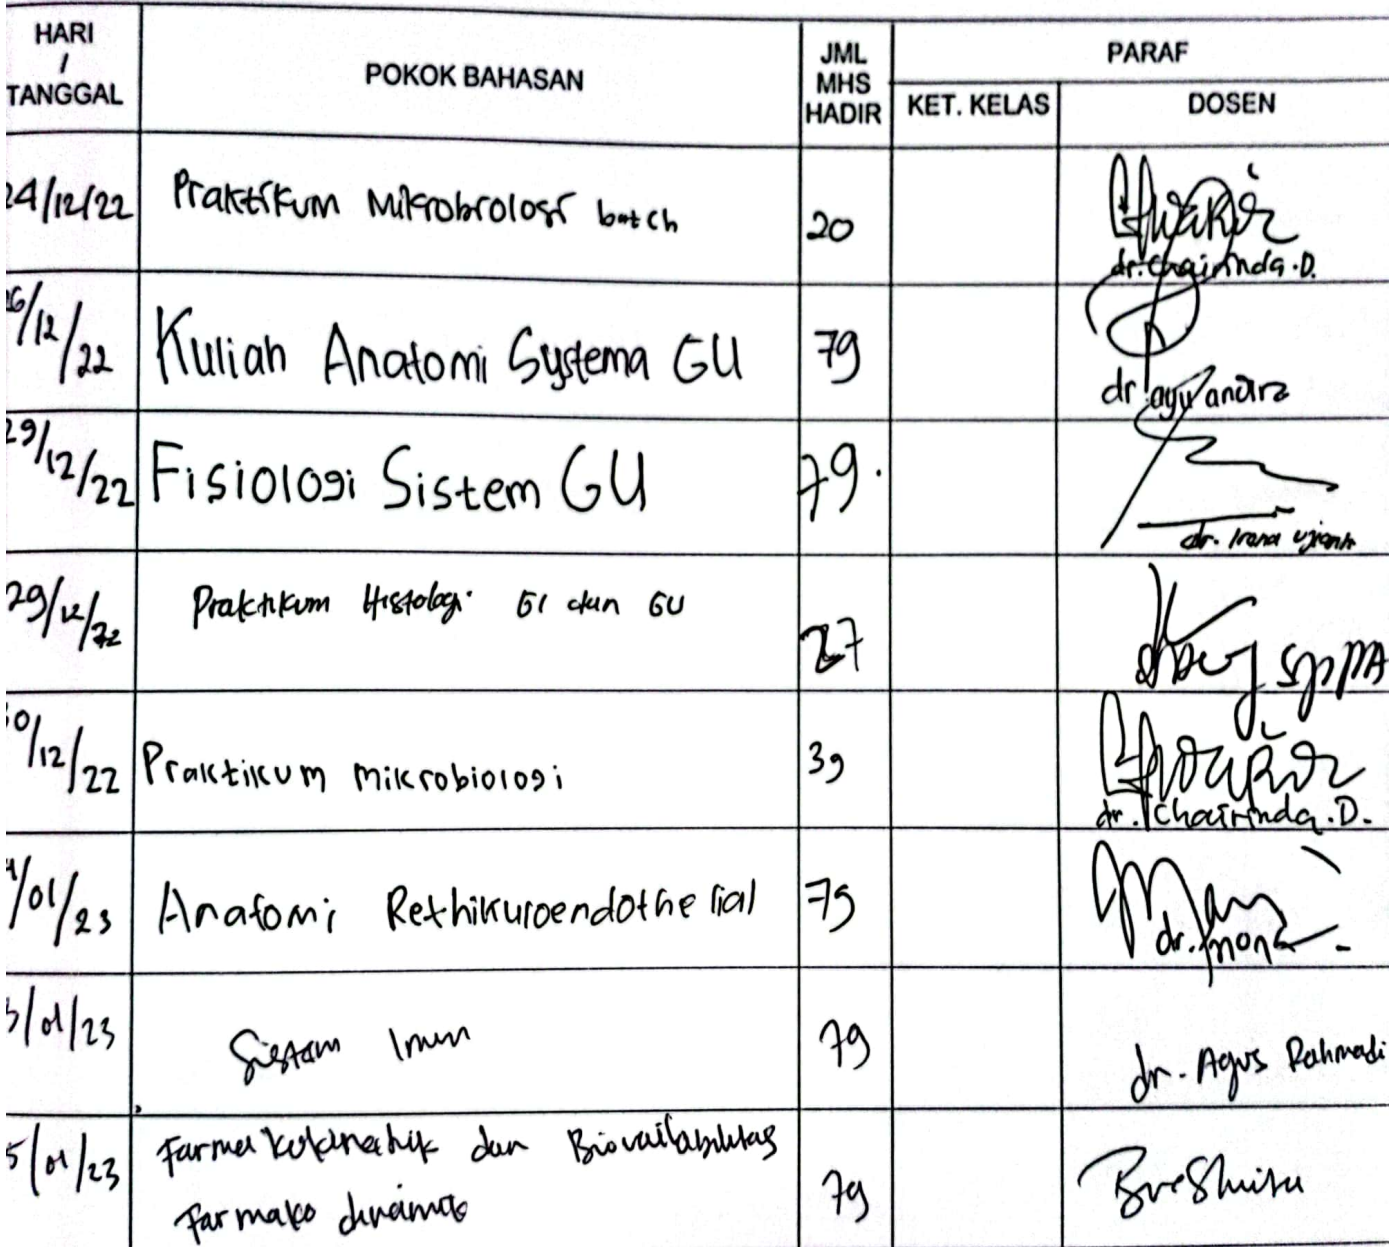 HARI / TANGGAL POKOK BAHASAN JML MHS HADIR PARAF
KET. KELAS DOSEN
24/12/22 Praktikum Mikrobiologi batch 20
dr. Chairinda .D.
6/12/22 Kuliah Anatomi Systema GU 79
dr ayu andira
29/12/22 Fisiologi Sistem GU 79.
dr. Irana
29/12/22 Praktikum Histologi GI dan GU 27
SpPA
0/12/22 Praktikum mikrobiologi 39
dr. Chairinda .D.
/01/23 Anatomi Rethikuroendothelial 79
dr. mona
3/01/23 Sistem Imun 79 dr. Agus Rahmadi
5/01/23 Farmakokinetik dan Biovailabilitas
Farmako dinamis 79